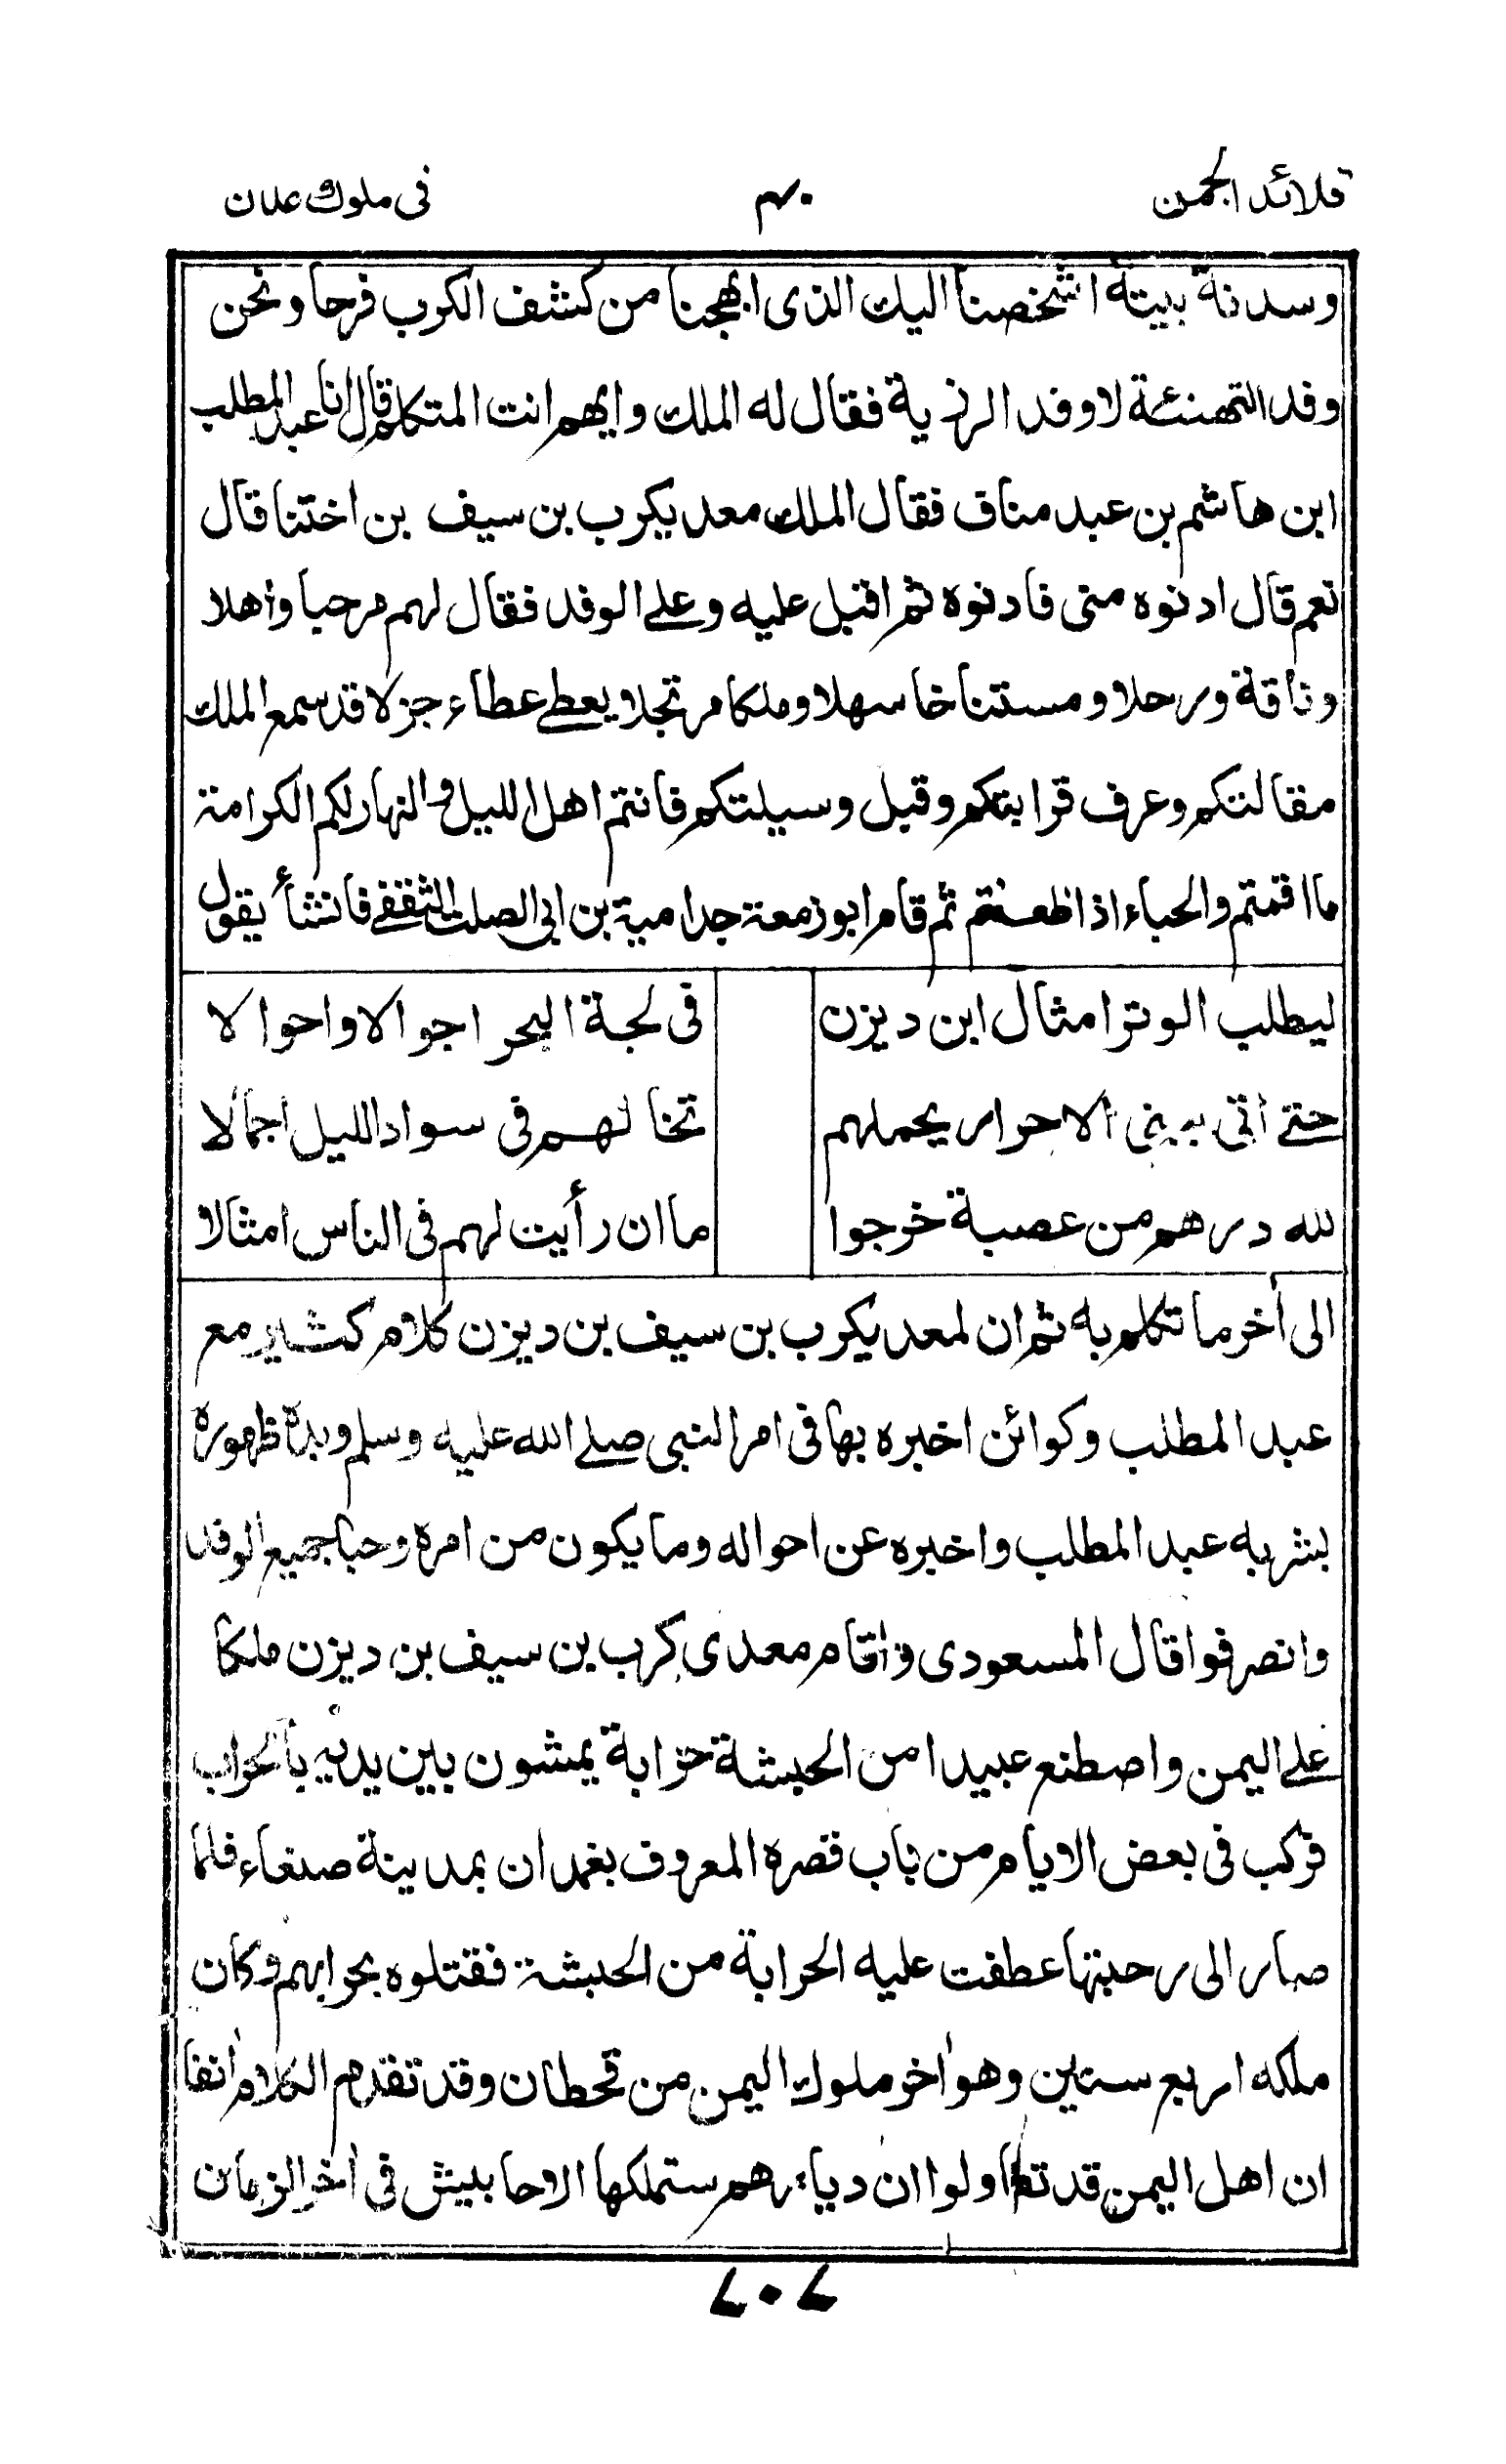 قلائد الجمن
٤٠
فى ملوك عدن
وسدنة بيته اشخصنا اليك الذى ابهجنا من كشف الكرب فرحا ونحن
وفد التهنئة لا وفد الرزية فقال له الملك وايهم انت المتكلم قال انا عبد المطلب
ابن هاشم بن عبد مناف فقال الملك معد يكرب بن سيف بن اختنا قال
نعم قال ادنوه منى فادنوه ثم اقبل عليه وعلى الوفد فقال لهم مرحبا وأهلا
وناقة ورحلا ومستناخا سهلا وملكا مرتجلا يعطى عطاء جزلا قد سمع الملك
مقالتكم وعرف قرابتكم وقبل وسيلتكم فانتم اهل الليل والنهار لكم الكرامة
ما اقمتم والحباء اذا ظعنتم ثم قام ابوزمعة جد امية بن ابى الصلت الثقفى فانشأ يقول
ليطلب الوتر امثال ابن ديزن
فى لجة البحر اجوالا واحوالا
حتى أتى ببنى الاحرار يحملهم
تخالهم فى سواد الليل اجمالا
لله درهم من عصبة خرجوا
ما ان رأيت لهم فى الناس امثالا
الى أخر ما تكلم به ثم ان لمعد يكرب بن سيف بن ديزن كلام كثير مع
عبد المطلب وكوائن اخبره بها فى امر النبى صلى الله عليه وسلم وبدة ظهوره
بشر به عبد المطلب واخبره عن احواله وما يكون من امره وحبا جميع الوفد
وانصرفوا قال المسعودى واقام معدى كرب بن سيف بن ديزن ملكا
على اليمن واصطنع عبيدا من الحبشة حرابة يمشون بين يديه بالحراب
فركب فى بعض الايام من باب قصره المعروف بغمدان بمدينة صنعاء فلما
صار الى رحبتها عطفت عليه الحرابة من الحبشة فقتلوه بحرابهم وكان
ملكه اربع سنين وهو أخر ملوك اليمن من قحطان وقد تقدم الكلام أنفا
ان اهل اليمن قد تداولوا ان ديارهم ستملكها الاحابيش فى أخر الزمان
٧٠٧